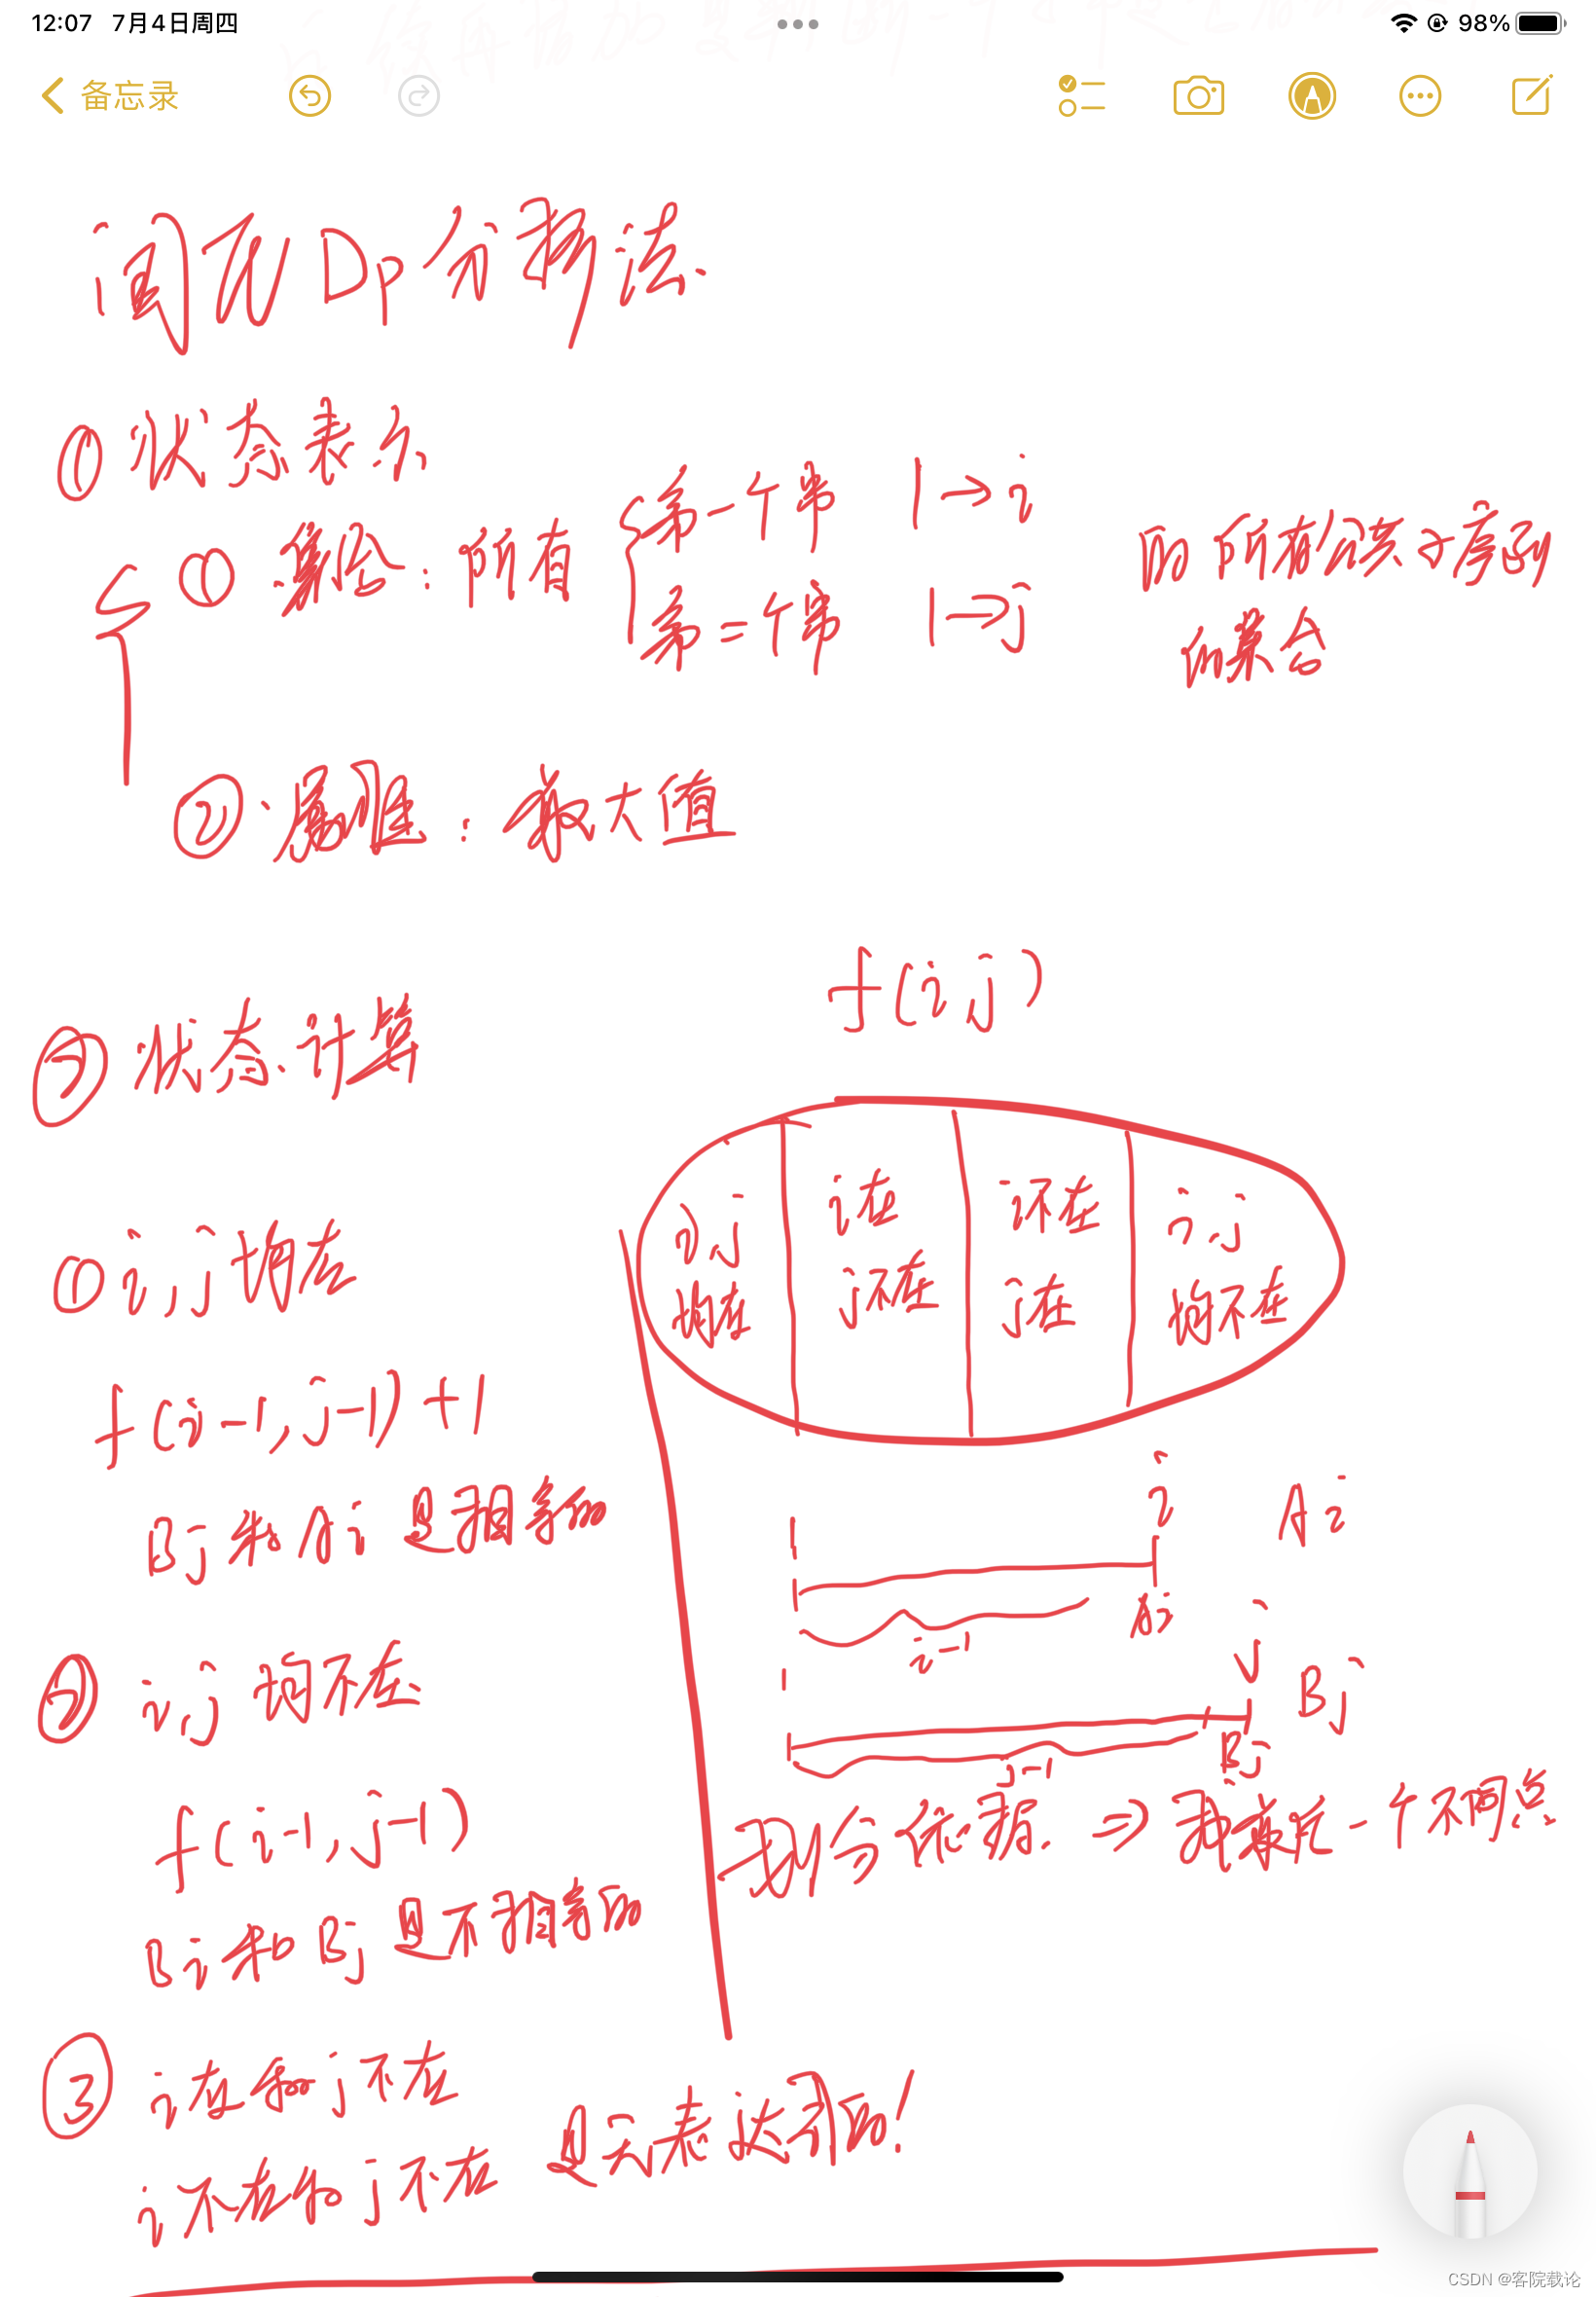 12:07 7月4日周四
98%
备忘录
闫氏Dp分析法
①状态表示
①集合:所有
第一个串 1→i
第二个串 1→j
的所有公共子序列
的集合
②属性:最大值
f(i,j)
②状态计算
i,j
均在
i在
j不在
i不在
j在
i,j
均不在
①i,j均在
f(i-1,j-1)+1
Bj和Ai是相等的
i
Ai
Ai
i-1
j
Bj
Bj
j-1
②i,j均不在
划分依据 ⇒ 最后一个不同点
f(i-1,j-1)
Bi和Bj是不相等的
③i在和j不在
i不在和j不在
是无表达式的!
CSDN @客院载论